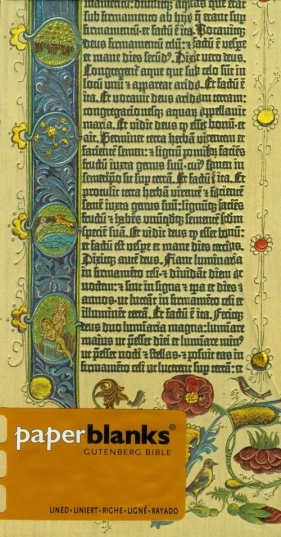 sub firmamento ab hijs q̄ erant sup
firmamentū: et factū ē ita. Vocavitqꝫ
deus firmamentū celū: ⁊ factū ē vespe
et mane dies secūdꝰ. Dixit vero deus.
Congregent̄ aque que sub celo sūt in
locū unū ⁊ appareat arida. Et factū ē
ita. Et vocavit deus aridam terram:
congregacionesqꝫ aquaꝝ appellavit
maria. Et vidit deus qꝫ esset bonū. et
ait. Germinet terra herbā virentem et
facientē semen: ⁊ lignū pomifeꝝ faciēs
fructū iuxta genus suū· cuiꝰ semen in
semetipo sit sup terrā. Et factū ē ita. Et
protulit terra herbā virentē ⁊ facientē
semē iuxta genus suū: lignūqꝫ faciēs
fructū ⁊ habēs unūqdqꝫ sementē scdm
speciē suā. Et vidit deus qꝫ esset bonū:
et factū est vespe et mane dies tercius.
Dixitqꝫ autē deus. Fiant luminaria
in firmamēto celi· ⁊ dividāt diem ac
noctem: ⁊ sint in signa ⁊ tpa et dies ⁊
annos· ut luceāt in firmamēto celi et
illuminēt terrā. Et factū ē ita. Fecitqꝫ
deus duo luminaria magna: lumiare
maius ut pesset diei et lumiare minꝰ
ut pesset nocti ⁊ stellas· ⁊ posuit eas in
firmamēto celi ut lucerent sup terrā: et
paperblanks®
GUTENBERG BIBLE
LINED • LINIERT • RIGHE • LIGNÉ • RAYADO